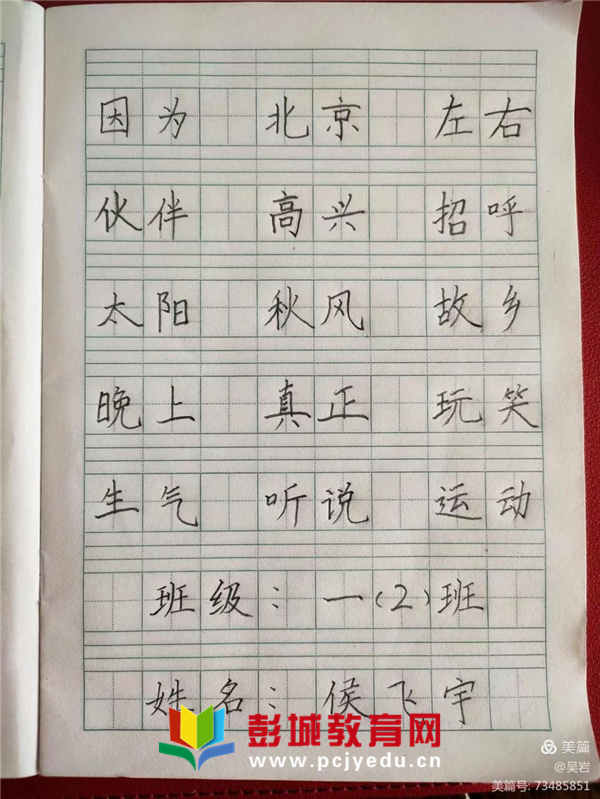 因为 北京 左右
伙伴 高兴 招呼
太阳 秋风 故乡
晚上 真正 玩笑
生气 听说 运动
班级：一（2）班
姓名：侯飞宇
彭城教育网
www.pcjyedu.cn
美篇
@吴岩
美篇号: 73485851